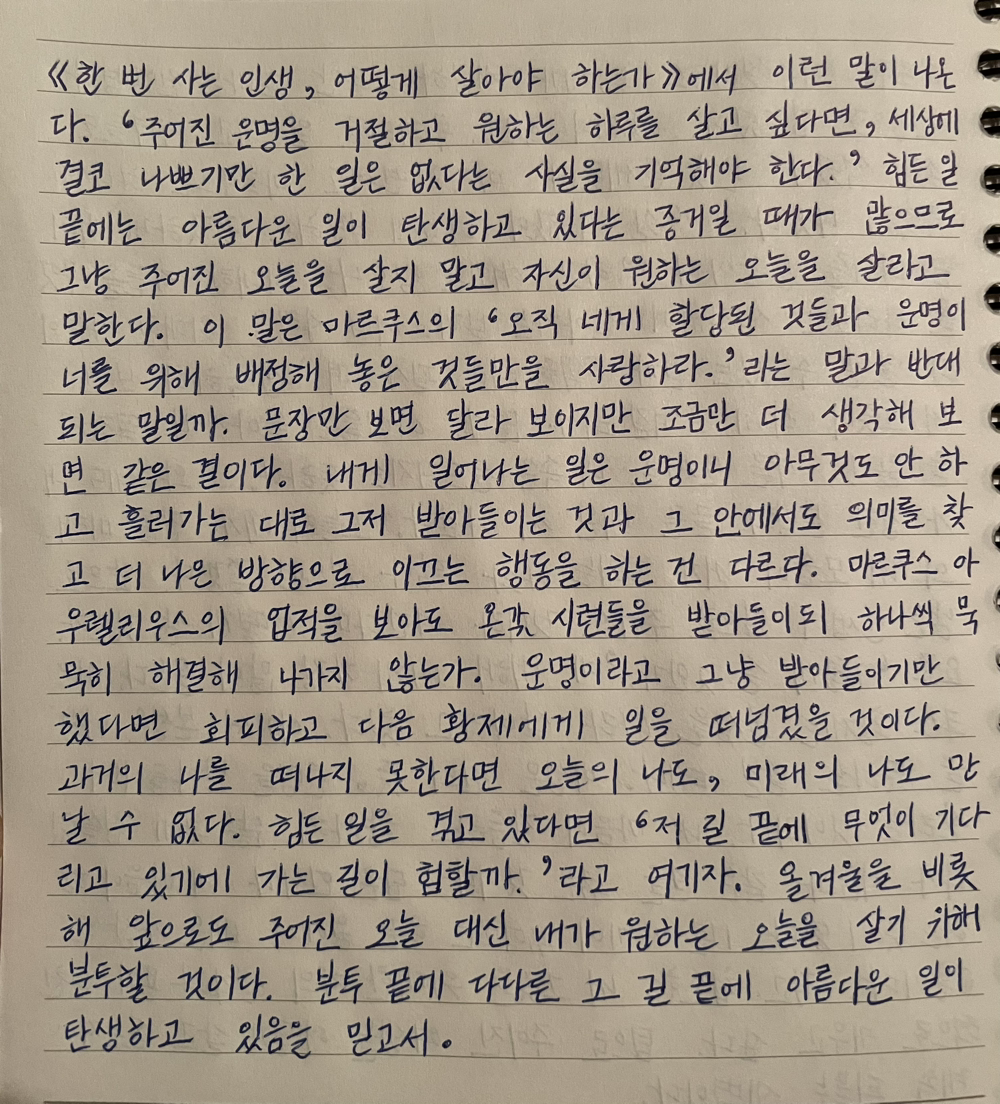 《한 번 사는 인생, 어떻게 살아야 하는가》에서 이런 말이 나온
다. ‘주어진 운명을 거절하고 원하는 하루를 살고 싶다면, 세상에
결코 나쁘기만 한 일은 없다는 사실을 기억해야 한다.’ 힘든 일
끝에는 아름다운 일이 탄생하고 있다는 증거일 때가 많으므로
그냥 주어진 오늘을 살지 말고 자신이 원하는 오늘을 살라고
말한다. 이 말은 마르쿠스의 ‘오직 네게 할당된 것들과 운명이
너를 위해 배정해 놓은 것들만을 사랑하라.’라는 말과 반대
되는 말일까. 문장만 보면 달라 보이지만 조금만 더 생각해 보
면 같은 결이다. 내게 일어나는 일은 운명이니 아무것도 안 하
고 흘러가는 대로 그저 받아들이는 것과 그 안에서도 의미를 찾
고 더 나은 방향으로 이끄는 행동을 하는 건 다르다. 마르쿠스 아
우렐리우스의 업적을 보아도 온갖 시련들을 받아들이되 하나씩 묵
묵히 해결해 나가지 않는가. 운명이라고 그냥 받아들이기만
했다면 회피하고 다음 황제에게 일을 떠넘겼을 것이다.
과거의 나를 떠나지 못한다면 오늘의 나도, 미래의 나도 만
날 수 없다. 힘든 일을 겪고 있다면 ‘저 길 끝에 무엇이 기다
리고 있기에 가는 길이 험할까.’라고 여기자. 올겨울을 비롯
해 앞으로도 주어진 오늘 대신 내가 원하는 오늘을 살기 위해
분투할 것이다. 분투 끝에 다다른 그 길 끝에 아름다운 일이
탄생하고 있음을 믿고서.